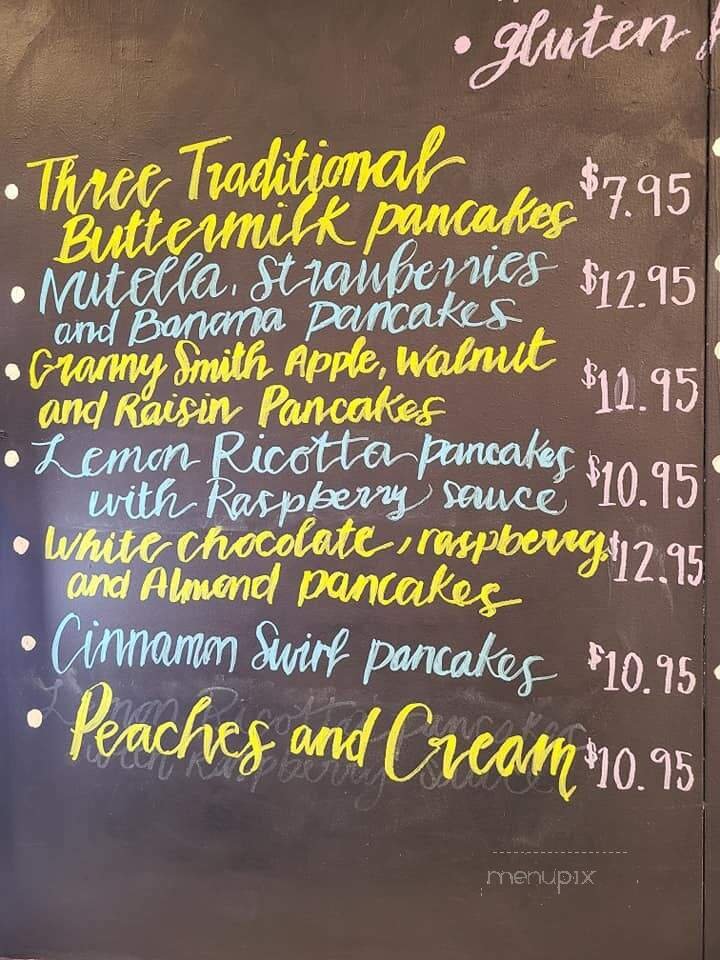 • gluten
• Three Traditional
Buttermilk pancakes $7.95
• Nutella, Strawberries
and Banana pancakes $12.95
• Granny Smith Apple, Walnut
and Raisin Pancakes $11.95
• Lemon Ricotta pancakes
with Raspberry sauce $10.95
• White chocolate, raspberry
and Almond pancakes $12.95
• Cinnamon Swirl pancakes $10.95
Lemon Ricotta pancakes
with Raspberry sauce
• Peaches and Cream $10.95
menupix